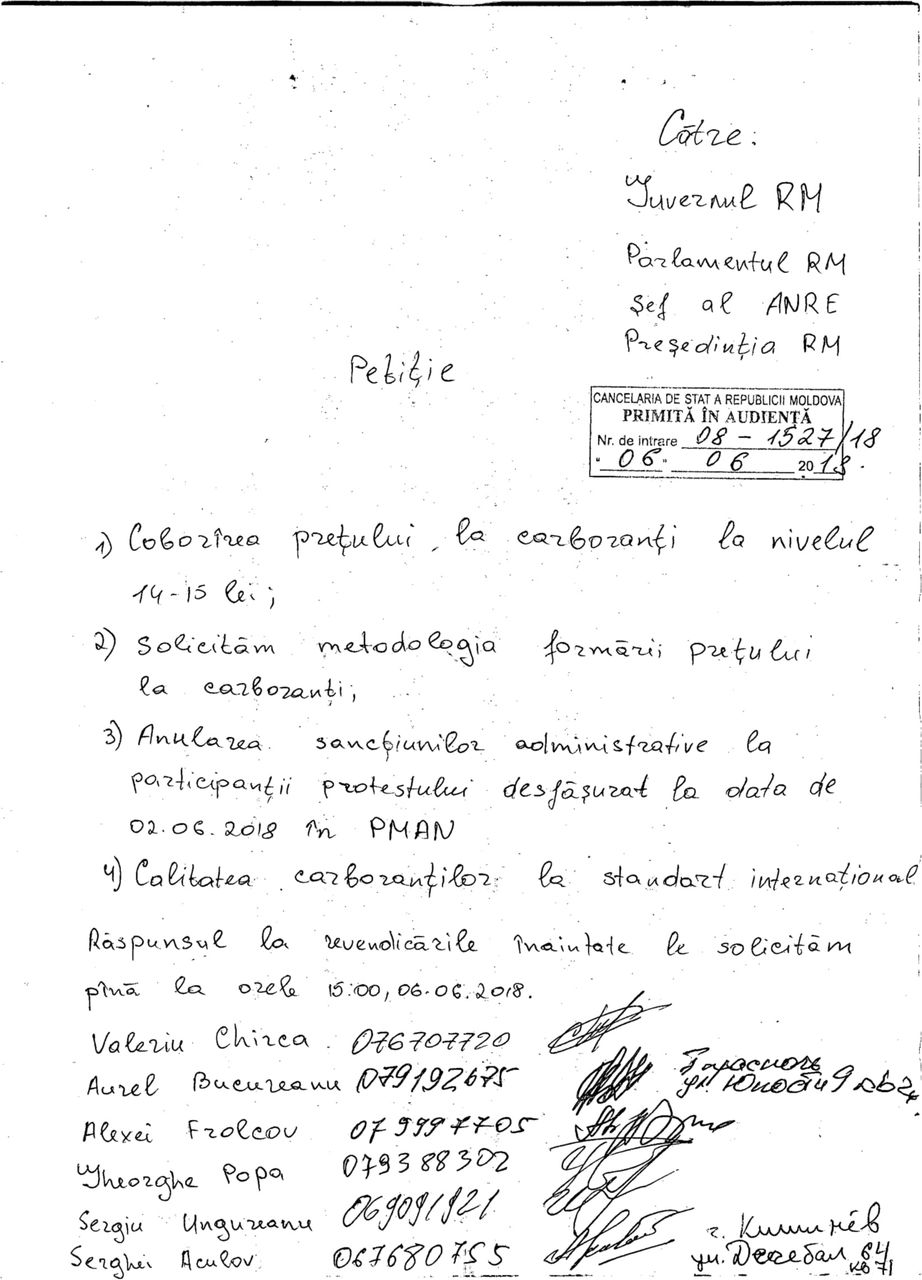 Către:
Guvernul RM
Parlamentul RM
Șef al ANRE
Președinția RM
Petiție
CANCELARIA DE STAT A REPUBLICII MOLDOVA
PRIMITĂ ÎN AUDIENȚĂ
Nr. de intrare 08 - 1527/18
"06" 06 2018.
1) Coborîrea prețului la carboranți la nivelul
14-15 lei;
2) Solicităm metodologia formării prețului
la carboranți;
3) Anularea sancțiunilor administrative la
participanții protestului desfășurat la data de
02.06.2018 în PMAN
4) Calitatea carboranților la standart internațional
Răspunsul la revendicările înaintate le solicităm
pînă la orele 15:00, 06.06.2018.
Valeriu Chirca 076707720
Aurel Bucureanu 079192675 ул. Юности 9
Alexei Frolcov 079997705
Gheorghe Popa 079388302
Sergiu Ungureanu 069091921
г. Кишинёв
Serghei Aculov 067680755 ул. Дечебал 64
кв 71